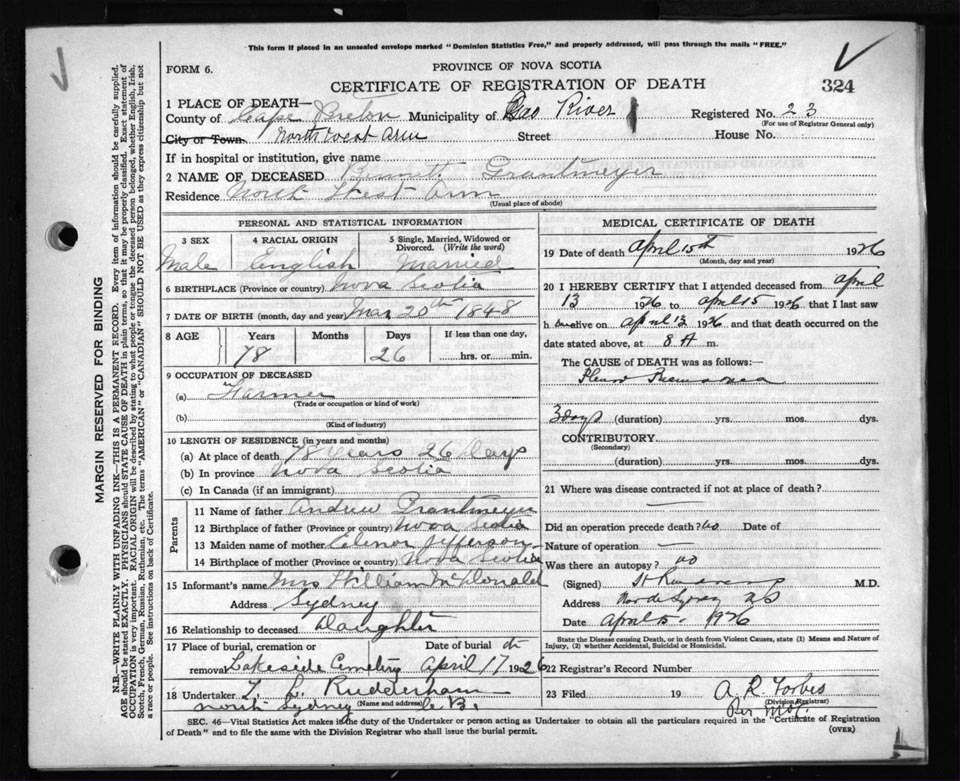 This form if placed in an unsealed envelope marked "Dominion Statistics Free," and properly addressed, will pass through the mails "FREE."
FORM 6.
PROVINCE OF NOVA SCOTIA
CERTIFICATE OF REGISTRATION OF DEATH
324
1 PLACE OF DEATH—
County of Cape Breton Municipality of River Registered No. 23
(For use of Registrar General only)
City or Town North West Arm Street House No.
If in hospital or institution, give name
2 NAME OF DECEASED Grantmyer
Residence North West Arm
(Usual place of abode)
PERSONAL AND STATISTICAL INFORMATION
3 SEX 4 RACIAL ORIGIN 5 Single, Married, Widowed or Divorced. (Write the word)
Male English Married
6 BIRTHPLACE (Province or country) Nova Scotia
7 DATE OF BIRTH (month, day and year) Mar 20th 1848
8 AGE Years Months Days If less than one day,
78 26 hrs. or min.
9 OCCUPATION OF DECEASED
(a) Farmer
(Trade or occupation or kind of work)
(b)
(Kind of industry)
10 LENGTH OF RESIDENCE (in years and months)
(a) At place of death 78 years 26 Days
(b) In province Nova Scotia
(c) In Canada (if an immigrant)
Parents
11 Name of father Andrew Grantmyer
12 Birthplace of father (Province or country) Nova Scotia
13 Maiden name of mother Elenor Jefferson
14 Birthplace of mother (Province or country) Nova Scotia
15 Informant's name Mrs William McDonald
Address Sydney
16 Relationship to deceased Daughter
17 Place of burial, cremation or removal Date of burial
Lakeside Cemetery April 17th 1926
18 Undertaker Rudderham
(Name and address)
North Sydney C.B.
MEDICAL CERTIFICATE OF DEATH
19 Date of death April 15th 1926
(Month, day and year)
20 I HEREBY CERTIFY that I attended deceased from April
13 1926 to April 15 1926 that I last saw
h alive on April 13 1926 and that death occurred on the
date stated above, at 8 A m.
The CAUSE of DEATH was as follows:—
Pneumonia
3 days (duration) yrs. mos. dys.
CONTRIBUTORY
(Secondary)
(duration) yrs. mos. dys.
21 Where was disease contracted if not at place of death?
Did an operation precede death? No Date of
Nature of operation —
Was there an autopsy? no
(Signed) M.D.
Address North Sydney NS
Date April 15 1926
State the Disease causing Death, or in death from Violent Causes, state (1) Means and Nature of Injury, (2) whether Accidental, Suicidal or Homicidal.
22 Registrar's Record Number
23 Filed 19 A. R. Forbes
(Division Registrar)
SEC. 46—Vital Statistics Act makes it the duty of the Undertaker or person acting as Undertaker to obtain all the particulars required in the "Certificate of Registration
of Death" and to file the same with the Division Registrar who shall issue the burial permit.
(OVER)
MARGIN RESERVED FOR BINDING
N.B.—WRITE PLAINLY WITH UNFADING INK—THIS IS A PERMANENT RECORD. Every item of information should be carefully supplied.
AGE should be stated EXACTLY. PHYSICIANS should STATE CAUSE OF DEATH in plain terms, so that it may be properly classified. Exact statement of
OCCUPATION is very important. RACIAL ORIGIN will be described by stating to what people or tongue the deceased person belonged, whether English, Irish,
Scotch, French, German, Russian, Ruthenian, etc. The terms "AMERICAN" or "CANADIAN" SHOULD NOT BE USED as they express citizenship but not
a race or people. See instructions on back of Certificate.